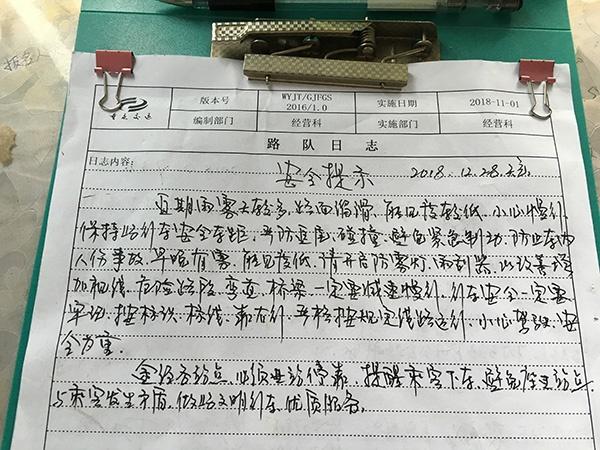 重庆交运
版本号 WYJT/GJFGS 2016/1.0 实施日期 2018-11-01
编制部门 经营科 实施部门 经营科
路队日志
日志内容: 安全提示 2018.12.28
近期雨雾天较多,路面湿滑,能见度较低,小心慢行,
保持好行车安全车距,严防追尾,碰撞,避免紧急制动,防止车内
人伤事故,早晚有雾,能见度低,请开启防雾灯,雨刮器,以改善增
加视线,危险路段,弯道,桥梁一定要减速慢行,行车安全一定要
牢记,按标识,标线,靠右行,严格按规定线路运行,小心驾驶,安
全万里。
途经各站点,必须进站停靠,提醒乘客下车,避免
与乘客发生矛盾,做好文明行车,优质服务。